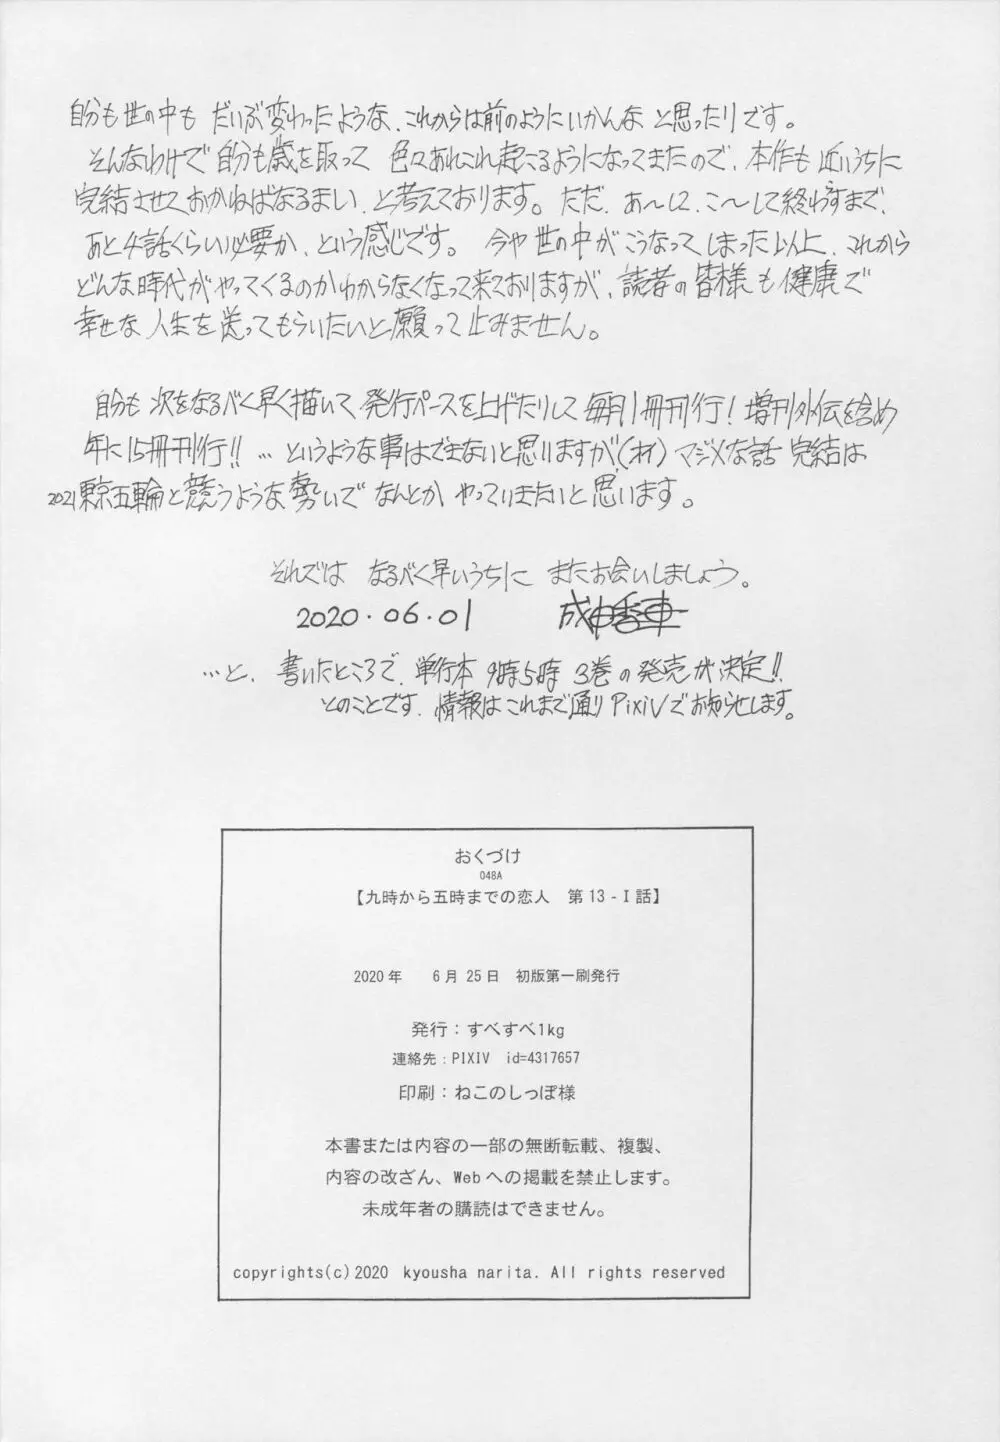 自分も世の中も だいぶ変わったような、これからは前のようにいかんな と思ったりです。
そんなわけで自分も歳を取って 色々あれこれ起こるようになってきたので、本作も近いうちに
完結させておかねばなるまい、と考えております。ただ、あ〜して、こ〜して終わらすまで、
あと4話くらい必要か、という感じです。 今や世の中がこうなってしまった以上、これから
どんな時代がやってくるのかわからなくなって来ておりますが、読者の皆様も健康で
幸せな人生を送ってもらいたいと願って止みません。
自分も次をなるべく早く描いて、発行ペースを上げたりして毎月1冊刊行! 増刊外伝を含め
年に15冊刊行!! …というような事はできないと思いますが(オイ) マジメな話 完結は
2021東京五輪と競うような勢いで なんとか やっていきたいと思います。
それでは なるべく早いうちに またお会いしましょう。
2020.06.01 成田香車
…と、書いたところで、単行本 9時5時 3巻の発売が決定!!
とのことです、情報はこれまで通りPixivでお知らせします。
おくづけ
048A
【九時から五時までの恋人 第13-I話】
2020年 6月25日 初版第一刷発行
発行:すべすべ1kg
連絡先:PIXIV id=4317657
印刷:ねこのしっぽ様
本書または内容の一部の無断転載、複製、
内容の改ざん、Webへの掲載を禁止します。
未成年者の購読はできません。
copyrights(c)2020 kyousha narita. All rights reserved